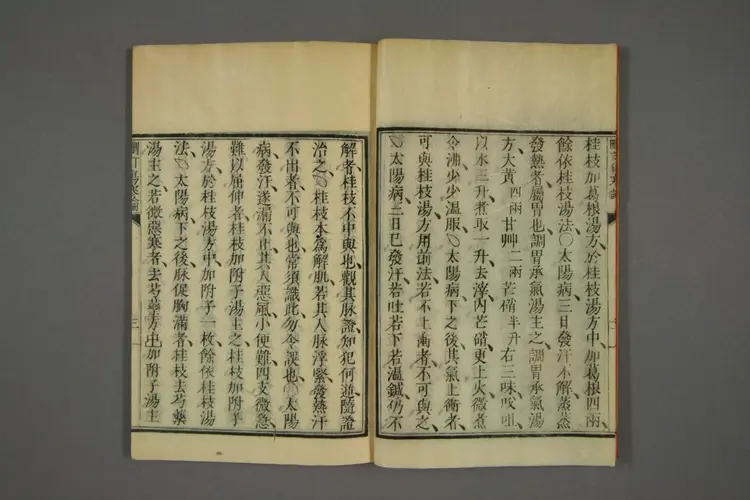 桂枝加葛根湯方於桂枝湯方中加葛根四兩
餘依桂枝湯法〇太陽病三日發汗不解蒸蒸
發熱者屬胃也調胃承氣湯主之調胃承氣湯
方大黃四兩甘艸二兩芒硝半升右三味㕮咀
以水三升煮取一升去滓內芒硝更上火微煮
令沸少少溫服〇太陽病下之後其氣上衝者
可與桂枝湯方用前法若不上衝者不可與之
〇太陽病三日已發汗若吐若下若溫鍼仍不
解者桂枝不中與也觀其脉證知犯何逆隨證
治之〇桂枝本為解肌若其人脉浮緊發熱汗
不出者不可與也常須識此勿令誤也〇太陽
病發汗遂漏不止其人惡風小便難四支微急
難以屈伸者桂枝加附子湯主之桂枝加附子
湯方於桂枝湯方中加附子一枚餘依桂枝湯
法〇太陽病下之後脉促胸滿者桂枝去芍藥
湯主之若微惡寒者去芍藥方中加附子湯主